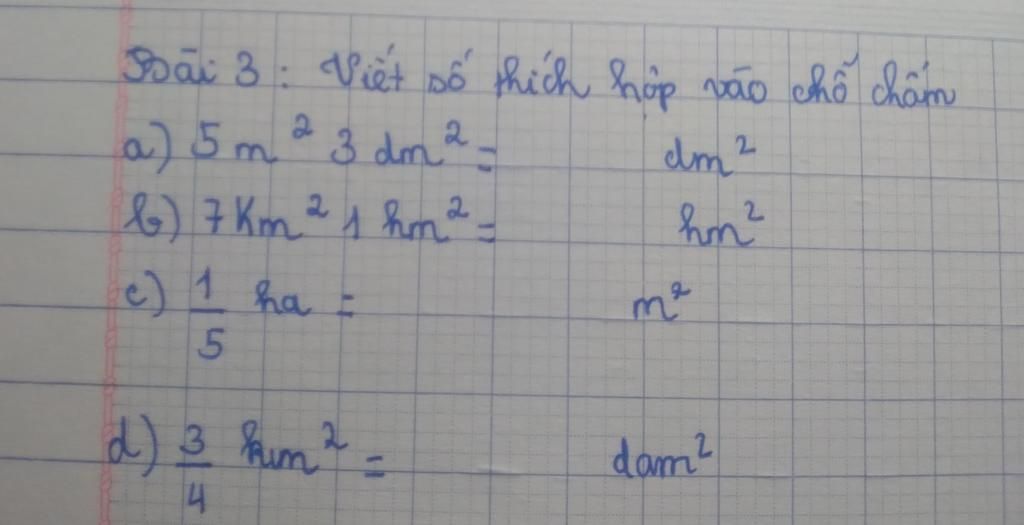 Bài 3 : Viết số thích hợp vào chỗ chấm
a) 5 m² 3 dm² = dm²
b) 7 Km² 1 hm² = hm²
c) 1/5 ha = m²
d) 3/4 hm² = dam²